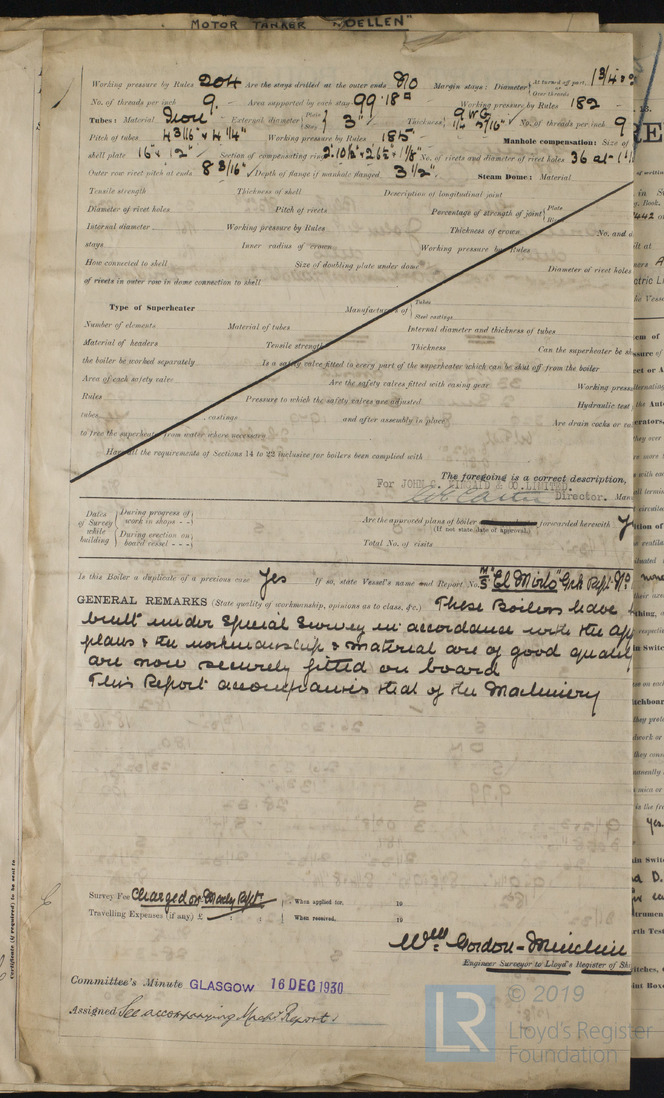 MOTOR TANKER "NOELLEN"
Working pressure by Rules 204 Are the stays drilled at the outer ends No Margin stays: Diameter { At turned off part, or Over threads 1 3/4"
No. of threads per inch 9. Area supported by each stay 99.18" Working pressure by Rules 182
Tubes: Material Iron External diameter { Plain Stay 3" Thickness { 9 WG No. of threads per inch 9
Pitch of tubes 4 3/16" x 4 1/4" Working pressure by Rules 185 Manhole compensation: Size of
shell plate 16" x 12" Section of compensating ring No. of rivets and diameter of rivet holes 36 at
Outer row rivet pitch at ends 8 3/16" Depth of flange if manhole flanged 3 1/2" Steam Dome: Material
Tensile strength Thickness of shell Description of longitudinal joint
Diameter of rivet holes Pitch of rivets Percentage of strength of joint { Plate
Internal diameter Working pressure by Rules Thickness of crown No. and d
stays Inner radius of crown Working pressure by Rules
How connected to shell Size of doubling plate under dome Diameter of rivet holes
of rivets in outer row in dome connection to shell
Type of Superheater Manufacturers of { Tubes Steel castings
Number of elements Material of tubes Internal diameter and thickness of tubes
Material of headers Tensile strength Thickness Can the superheater be sh
the boiler be worked separately Is a safety valve fitted to every part of the superheater which can be shut off from the boiler
Area of each safety valve Are the safety valves fitted with easing gear Working press
Rules Pressure to which the safety valves are adjusted Hydraulic test
tubes castings and after assembly in place Are drain cocks or va
to free the superheater from water where necessary
Have all the requirements of Sections 14 to 22 inclusive for boilers been complied with
The foregoing is a correct description,
For JOHN G. KINCAID & CO. LIMITED. Director. Man
Dates of Survey while building { During progress of work in shops - - Are the approved plans of boiler forwarded herewith Y
(If not state date of approval.)
During erection on board vessel - - - Total No. of visits
Is this Boiler a duplicate of a previous case Yes If so, state Vessel's name and Report No. M/S "El Mirlo" Grk Rept. No
GENERAL REMARKS (State quality of workmanship, opinions as to class, &c.) These Boilers have
built under Special Survey in accordance with the app
plans & the workmanship & material are of good qualit
are now securely fitted on board
This Report accompanies that of the Machinery
Survey Fee Charged on Mchy Rept. When applied for, 19
Travelling Expenses (if any) £ : : When received, 19
Wm Gordon-Minchin
Engineer Surveyor to Lloyd's Register of Shi
Committee's Minute GLASGOW 16 DEC 1930
Assigned See accompanying Machy Report.
Certificate (if required) to be sent to
LR © 2019
Lloyd's Register
Foundation